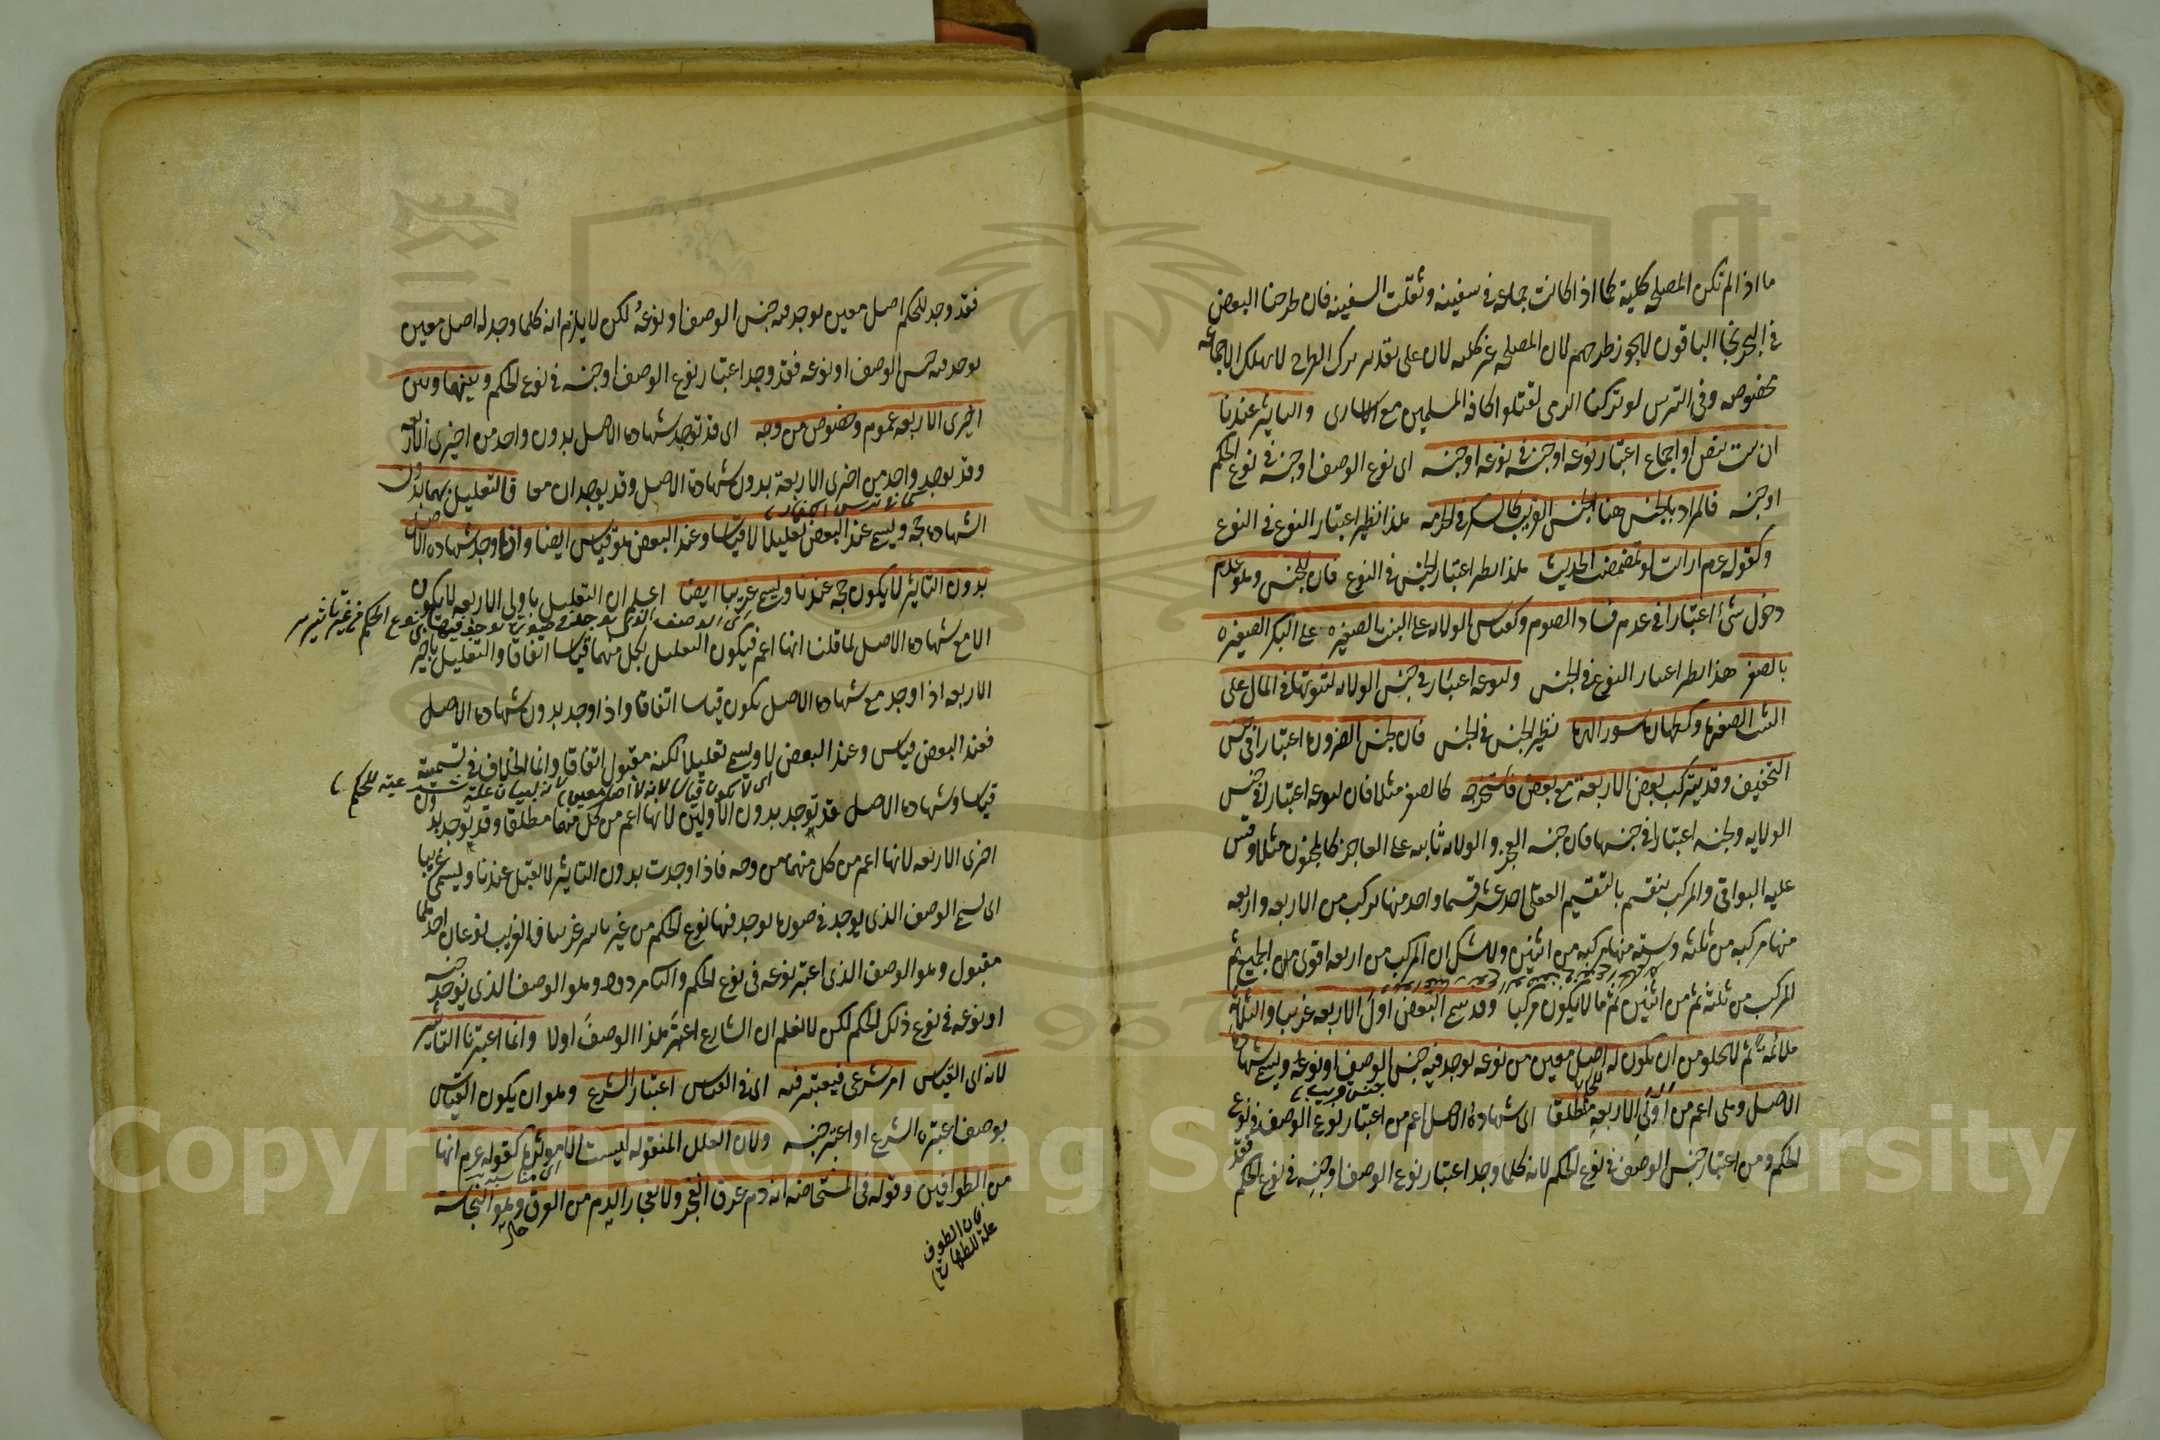 ما اذا لم تكن المصلحة كلية كما اذا كانت جماعة في سفينة وثقلت السفينة فان طرحنا البعض
في البحر نجا الباقون لا يجوز طرحهم لان المصلحة غير كلية لان على تقدير ترك الطرح لا يهلك الا جماعة
مخصوصة وفي الترس لو تركنا الرمي لقتلوا كافة المسلمين مع الاسارى والتاثير عندنا
ان يثبت بنص او اجماع اعتبار نوعه او جنسه في نوعه او جنسه اى نوع الوصف او جنسه في نوع الحكم
او جنسه فالمراد بالجنس هنا الجنس القريب كالسكر في الحرمة هذا نظير اعتبار النوع في النوع
وكقوله عم ارايت لو تمضمضت الحديث هذا نظير اعتبار الجنس في النوع فان للجنس وهو عدم
دخول شئ اعتبارا في عدم فساد الصوم وكقياس الولاية على الثيب الصغيرة على البكر الصغيرة
بالصغر هذا نظير اعتبار النوع في الجنس ولنوعه اعتبار في جنس الولاية لثبوتها في المال على
الثيب الصغيرة وكطهارة سور الهرة نظير الجنس في الجنس فان لجنس الضرورة اعتبارا في جنس
التخفيف وقد يتركب بعض الاربعة مع بعض فاستخرجه كالصغر مثلا فان لنوعه اعتبارا في جنس
الولاية ولجنسه اعتبارا في جنسها فان جنسه العجز والولاية ثابتة على العاجز كالمجنون مثلا وقس
عليه البواقي والمركب ينقسم بالتقسيم العقلي احد عشر قسما واحد منها مركب من الاربعة واربعة
منها مركبة من ثلثة وستة منها مركبة من اثنين ولا شك ان المركب من اربعة اقوى من الجميع ثم
المركب من ثلثة ثم من اثنين ثم ما لا يكون مركبا وقد سمى البعض اول الاربعة غريبا والثلاثة
ملائمة ثم لا يخلو من ان يكون له اصل معين من نوعه يوجد فيه جنس الوصف او نوعه ويسمى شهادة
جنس قريب
الاصل وهي اعم من اولى الاربعة مطلقا اى شهادة الاصل اعم من اعتبار نوع الوصف في نوع
الحكم ومن اعتبار جنس الوصف في نوع الحكم لانه كلما وجد اعتبار نوع الوصف او جنسه في نوع الحكم
فقد
فقد وجد للحكم اصل معين يوجد فيه جنس الوصف او نوعه لكن لا يلزم انه كلما وجد له اصل معين
يوجد فيه جنس الوصف او نوعه فقد وجد اعتبار نوع الوصف او جنسه في نوع الحكم وبينها وبين
اخرى الاربعة عموم وخصوص من وجه اى قد توجد شهادة الاصل بدون واحد من اخرى الاربعة
وقد يوجد واحد من اخرى الاربعة بدون شهادة الاصل وقد يوجدان معا فالتعليل بهما بدون
الشهادة حجة ويسمى عند البعض تعليلا لا قياسا وعند البعض هو قياس ايضا واذا وجد شهادة الاصل
بدون التاثير لا يكون حجة عندنا ويسمى غريبا ايضا اعلم ان التعليل باولى الاربعة لا يكون
الا مع شهادة الاصل لما قلنا انها اعم فيكون التعليل بكل منهما قياسا اتفاقا والتعليل باخرى
الاربعة اذا وجد مع شهادة الاصل يكون قياسا اتفاقا واذا وجد بدون شهادة الاصل
فعند البعض قياس وعند البعض لا ويسمى تعليلا لكنه مقبول اتفاقا وانما الخلاف في تسميته
قياسا وشهادة الاصل قد توجد بدون الاوليين لانها اعم من كل منهما مطلقا وقد توجد بدون
اخرى الاربعة لانها اعم من كل منهما من وجه فاذا وجدت بدون التاثير لا يقبل عندنا ويسمى غريبا
اى يسمى الوصف الذى يوجد في صورة يوجد فيها نوع الحكم من غير تاثير غريبا فالغريب نوعان احدهما
مقبول وهو الوصف الذى اعتبر نوعه في نوع الحكم والثاني مردود وهو الوصف الذى يوجد جنسه
او نوعه في نوع ذلك الحكم لكن لا نعلم ان الشارع اعتبر هذا الوصف اولا وانما اعتبرنا التاثير
لانه اى القياس امر شرعى فيعتبر فيه اى في القياس اعتبار الشرع وهو ان يكون القياس
بوصف اعتبره الشرع او اعتبر جنسه ولان العلل المنقولة ليست الا مؤثرة كقوله عم انها
من الطوافين وقوله في المستحاضة انه دم عرق انفجر ولانفجار الدم من العرق وهو النجاسة
فان الطوف
علة للطهارة